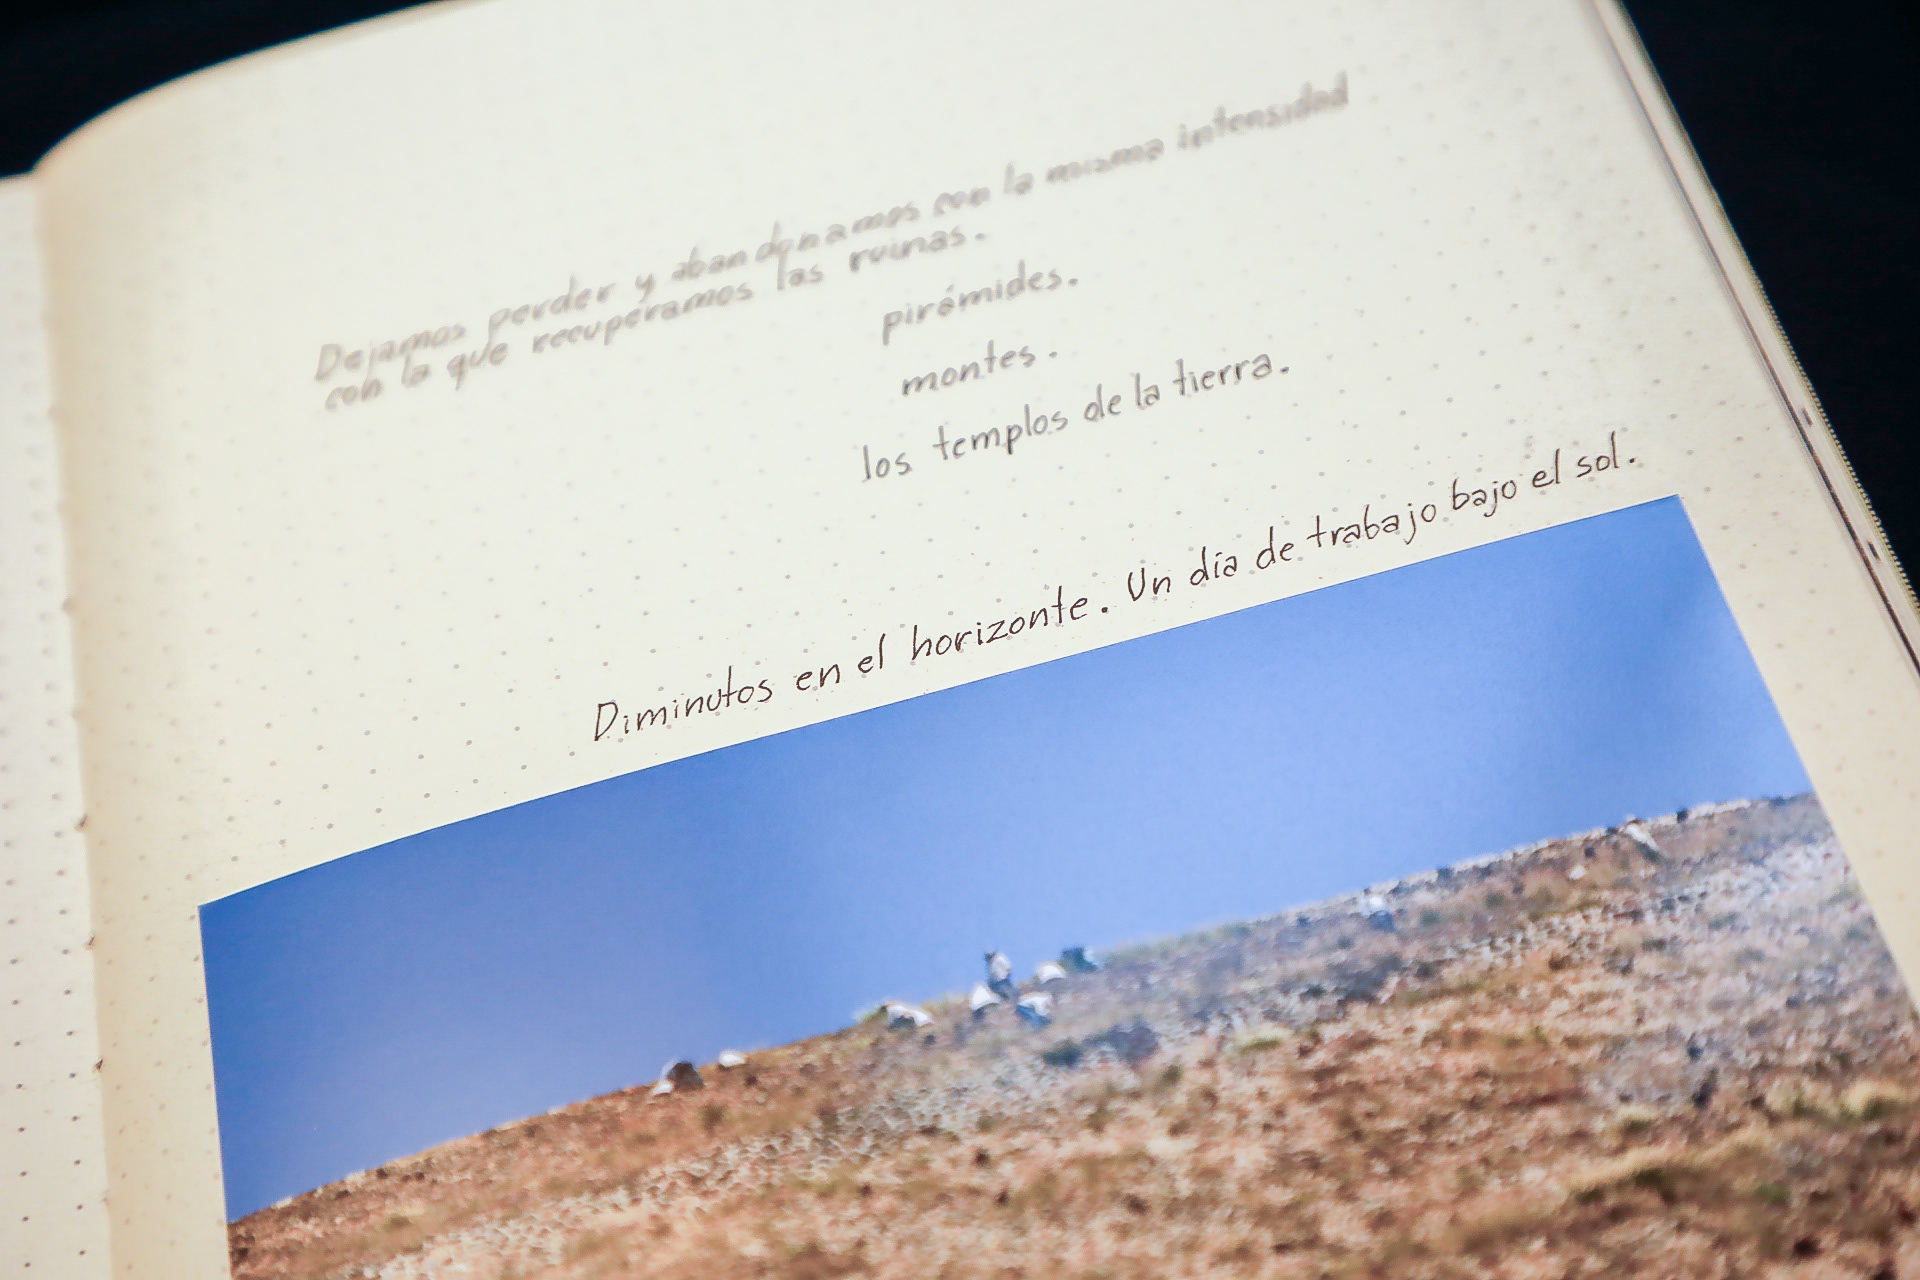 Dejamos perder y abandonamos con la misma intensidad
con la que recuperamos las ruinas.
pirámides.
montes.
los templos de la tierra.
Diminutos en el horizonte. Un día de trabajo bajo el sol.